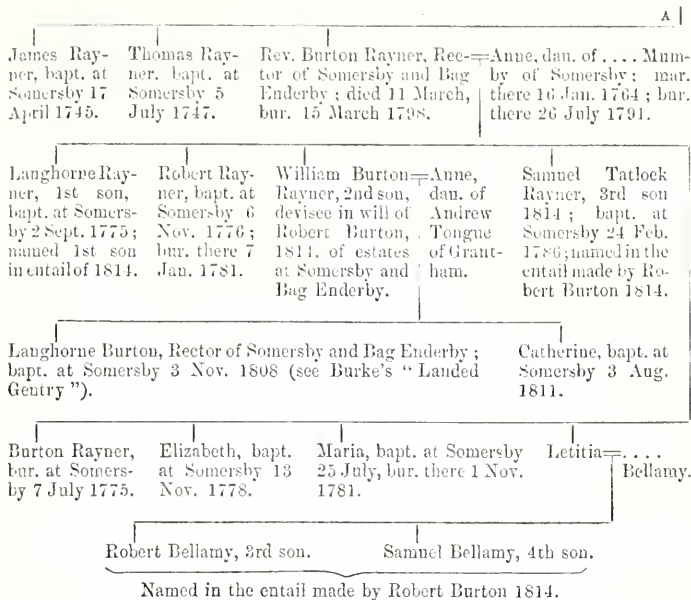 A
James Ray-
ner, bapt. at
Somersby 17
April 1745.
Thomas Ray-
ner, bapt. at
Somersby 5
July 1747.
Rev. Burton Rayner, Rec-
tor of Somersby and Bag
Enderby ; died 11 March,
bur. 15 March 1798.
Anne, dau. of . . . . Mum-
by of Somersby ; mar.
there 16 Jan. 1764 ; bur.
there 26 July 1791.
Langhorne Ray-
ner, 1st son,
bapt. at Somers-
by 2 Sept. 1775 ;
named 1st son
in entail of 1814.
Robert Ray-
ner, bapt. at
Somersby 6
Nov. 1776 ;
bur. there 7
Jan. 1781.
William Burton
Rayner, 2nd son,
devisee in will of
Robert Burton,
1814, of estates
at Somersby and
Bag Enderby.
Anne,
dau. of
Andrew
Tongue
of Grant-
ham.
Samuel Tatlock
Rayner, 3rd son
1814 ; bapt. at
Somersby 24 Feb.
1786 ; named in the
entail made by Ro-
bert Burton 1814.
Langhorne Burton, Rector of Somersby and Bag Enderby ;
bapt. at Somersby 3 Nov. 1808 (see Burke's “ Landed
Gentry ”).
Catherine, bapt. at
Somersby 3 Aug.
1811.
Burton Rayner,
bur. at Somers-
by 7 July 1775.
Elizabeth, bapt.
at Somersby 13
Nov. 1778.
Maria, bapt. at Somersby
25 July, bur. there 1 Nov.
1781.
Letitia
. . . .
Bellamy.
Robert Bellamy, 3rd son.
Samuel Bellamy, 4th son.
Named in the entail made by Robert Burton 1814.